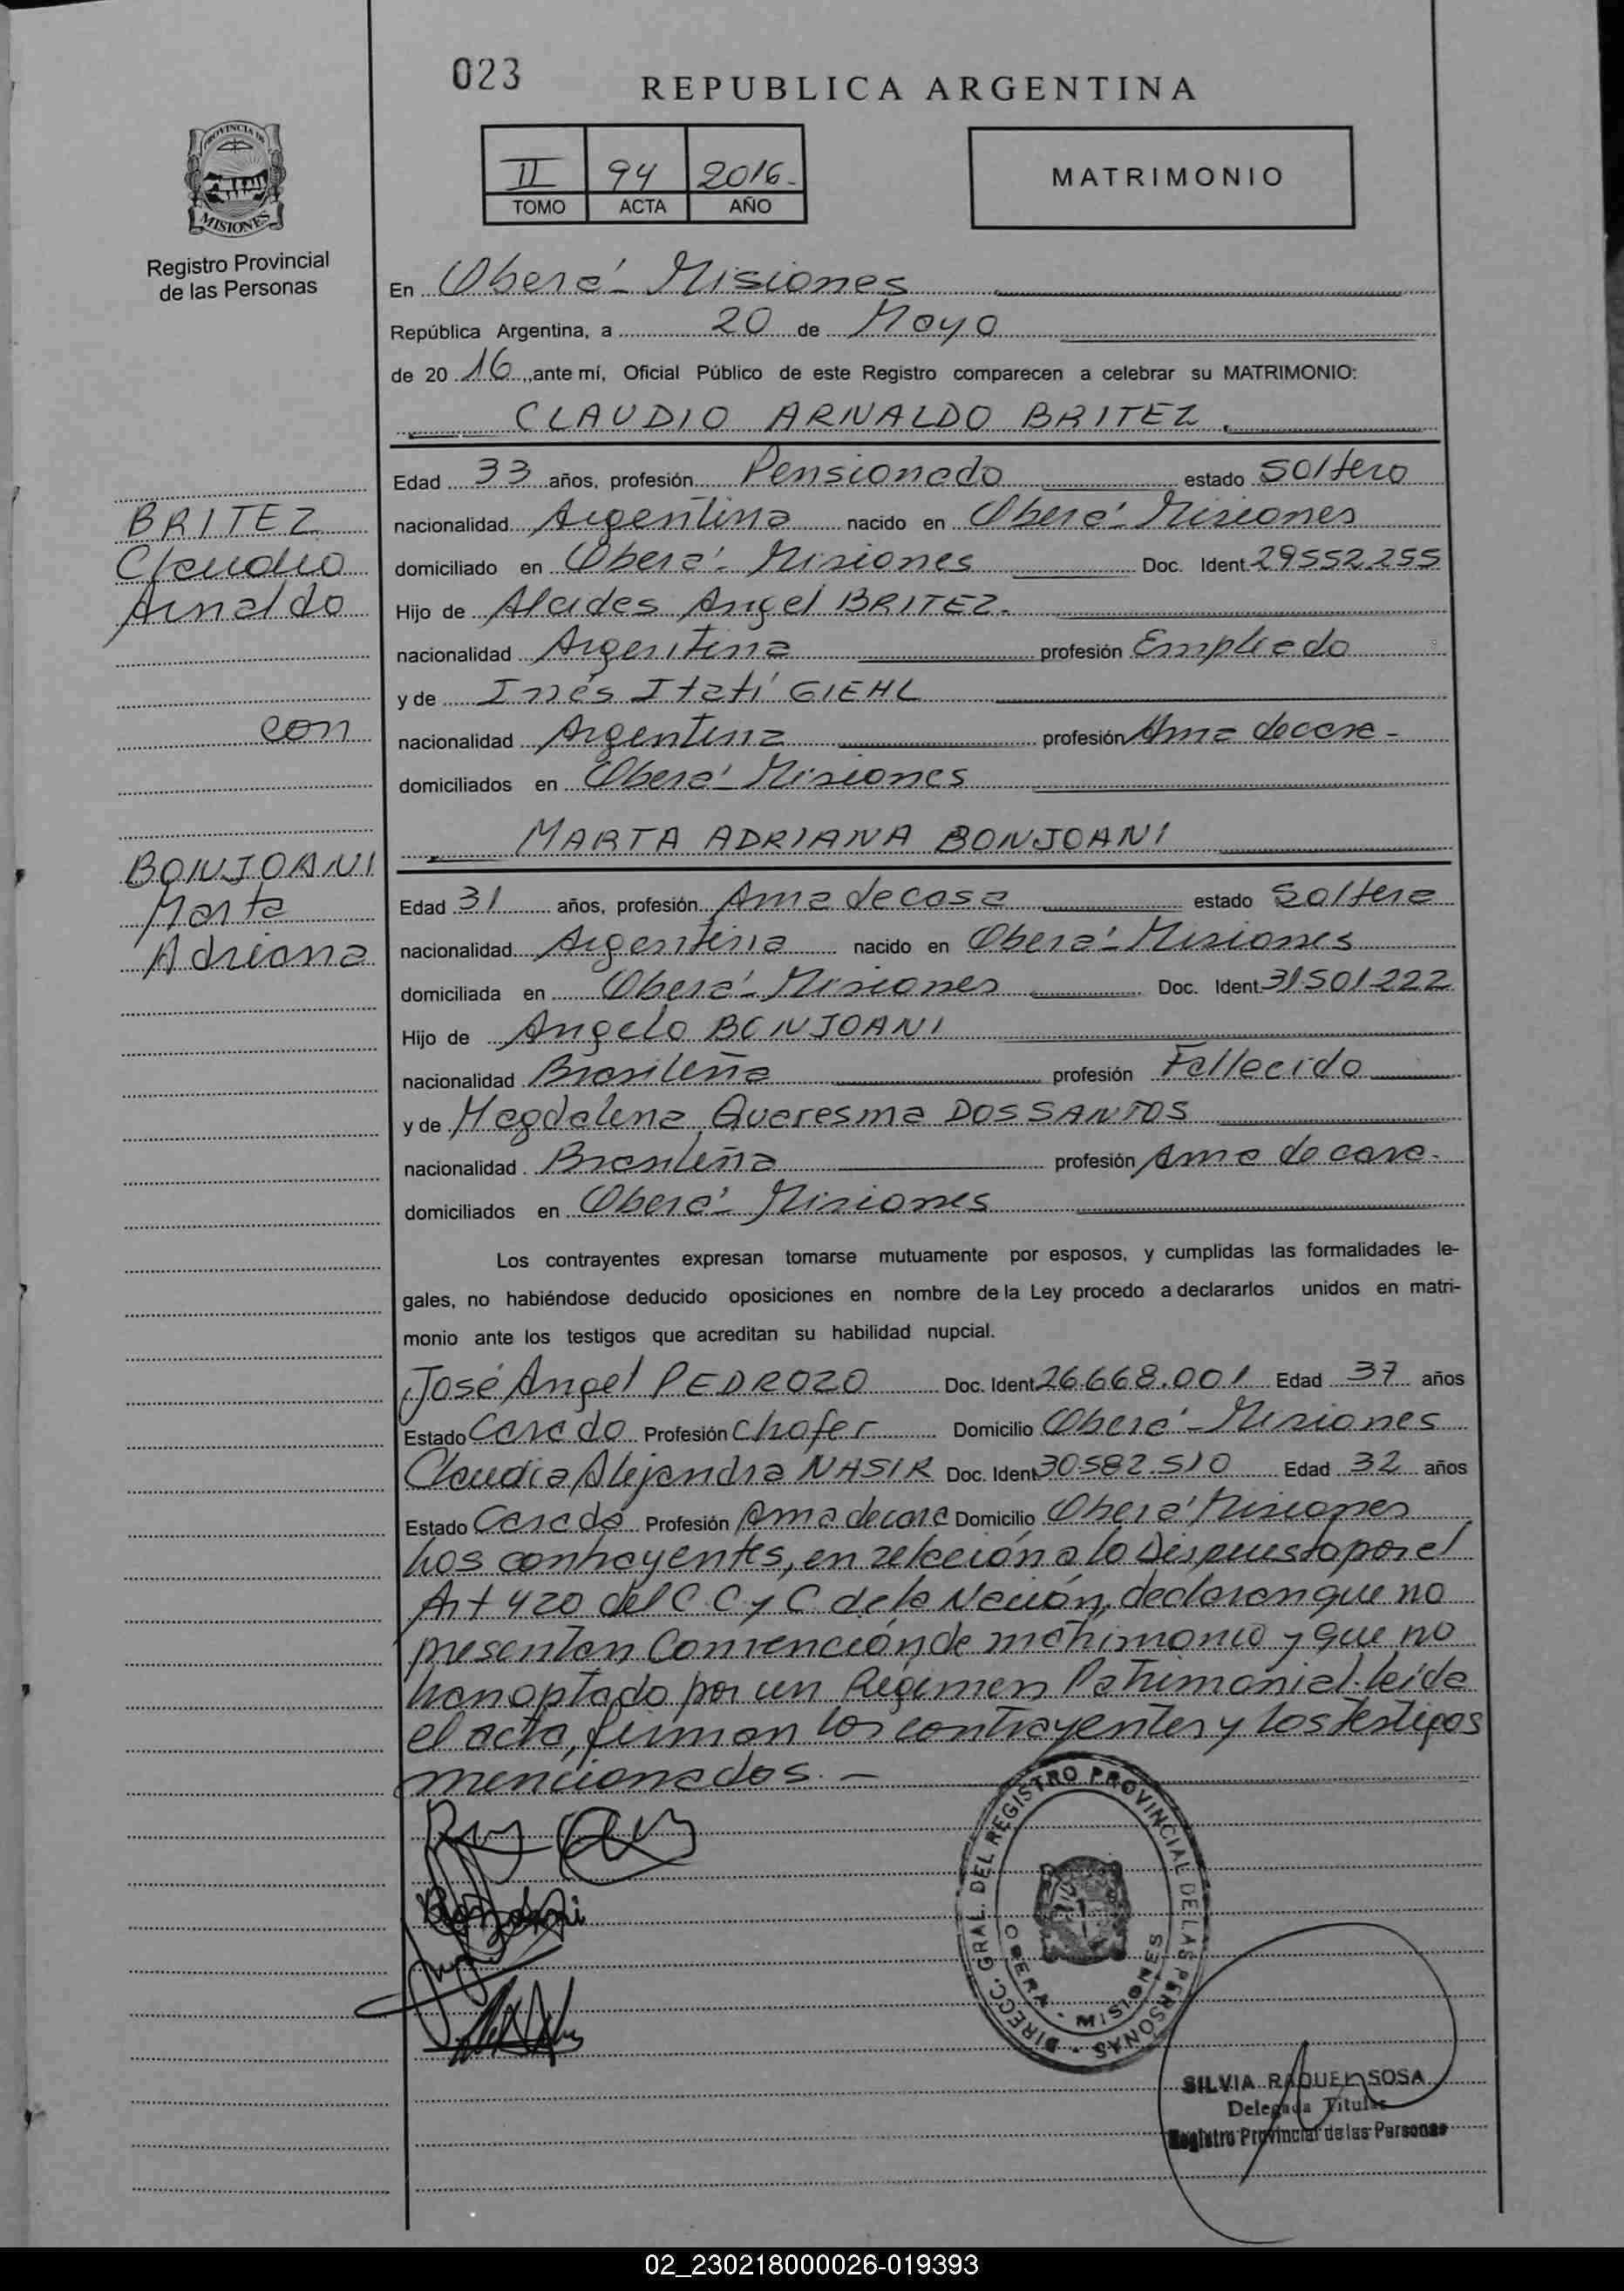 023
REPUBLICA ARGENTINA
PROVINCIA DE
MISIONES
Registro Provincial
de las Personas
II 94 2016.-
TOMO ACTA AÑO
MATRIMONIO
En Oberá - Misiones
República Argentina, a 20 de Mayo
de 20 16, ante mí, Oficial Público de este Registro comparecen a celebrar su MATRIMONIO:
CLAUDIO ARNALDO BRITEZ
Edad 33 años, profesión Pensionado estado Soltero
BRITEZ
Claudio
Arnaldo
nacionalidad Argentina nacido en Oberá - Misiones
domiciliado en Oberá - Misiones Doc. Ident 29552.255
Hijo de Alcides Angel BRITEZ.
nacionalidad Argentina profesión Empleado
y de Inés Itatí GIEHL
con
nacionalidad Argentina profesión Ama de casa -
domiciliados en Oberá - Misiones
MARTA ADRIANA BONJOANI
BONJOANI
Marta
Adriana
Edad 31 años, profesión Ama de casa estado Soltera
nacionalidad Argentina nacido en Oberá - Misiones
domiciliada en Oberá - Misiones Doc. Ident 31.501.222
Hijo de Angelo BONJOANI
nacionalidad Brasileña profesión Fallecido
y de Magdalena Queresma DOS SANTOS
nacionalidad Brasileña profesión Ama de casa -
domiciliados en Oberá - Misiones
Los contrayentes expresan tomarse mutuamente por esposos, y cumplidas las formalidades le-
gales, no habiéndose deducido oposiciones en nombre de la Ley procedo a declararlos unidos en matri-
monio ante los testigos que acreditan su habilidad nupcial.
José Angel PEDROZO Doc. Ident 26.668.001 Edad 37 años
Estado Casado Profesión Chofer Domicilio Oberá - Misiones
Claudia Alejandra NASIR Doc. Ident 30.582.510 Edad 32 años
Estado Casada Profesión Ama de casa Domicilio Oberá Misiones
Los contrayentes, en relación a lo Dispuesto por el
Art 420 del C.C y C. de la Nación, declaran que no
presentan Convención de matrimonio y que no
han optado por un Régimen Patrimonial. Leída
el acta, firman los contrayentes y los testigos
mencionados. -
DIRECC. GRAL. DEL REGISTRO PROVINCIAL DE LAS PERSONAS
OBERA - MISIONES
SILVIA RAQUEL SOSA
Delegada Titular
Registro Provincial de las Personas
02_230218000026-019393